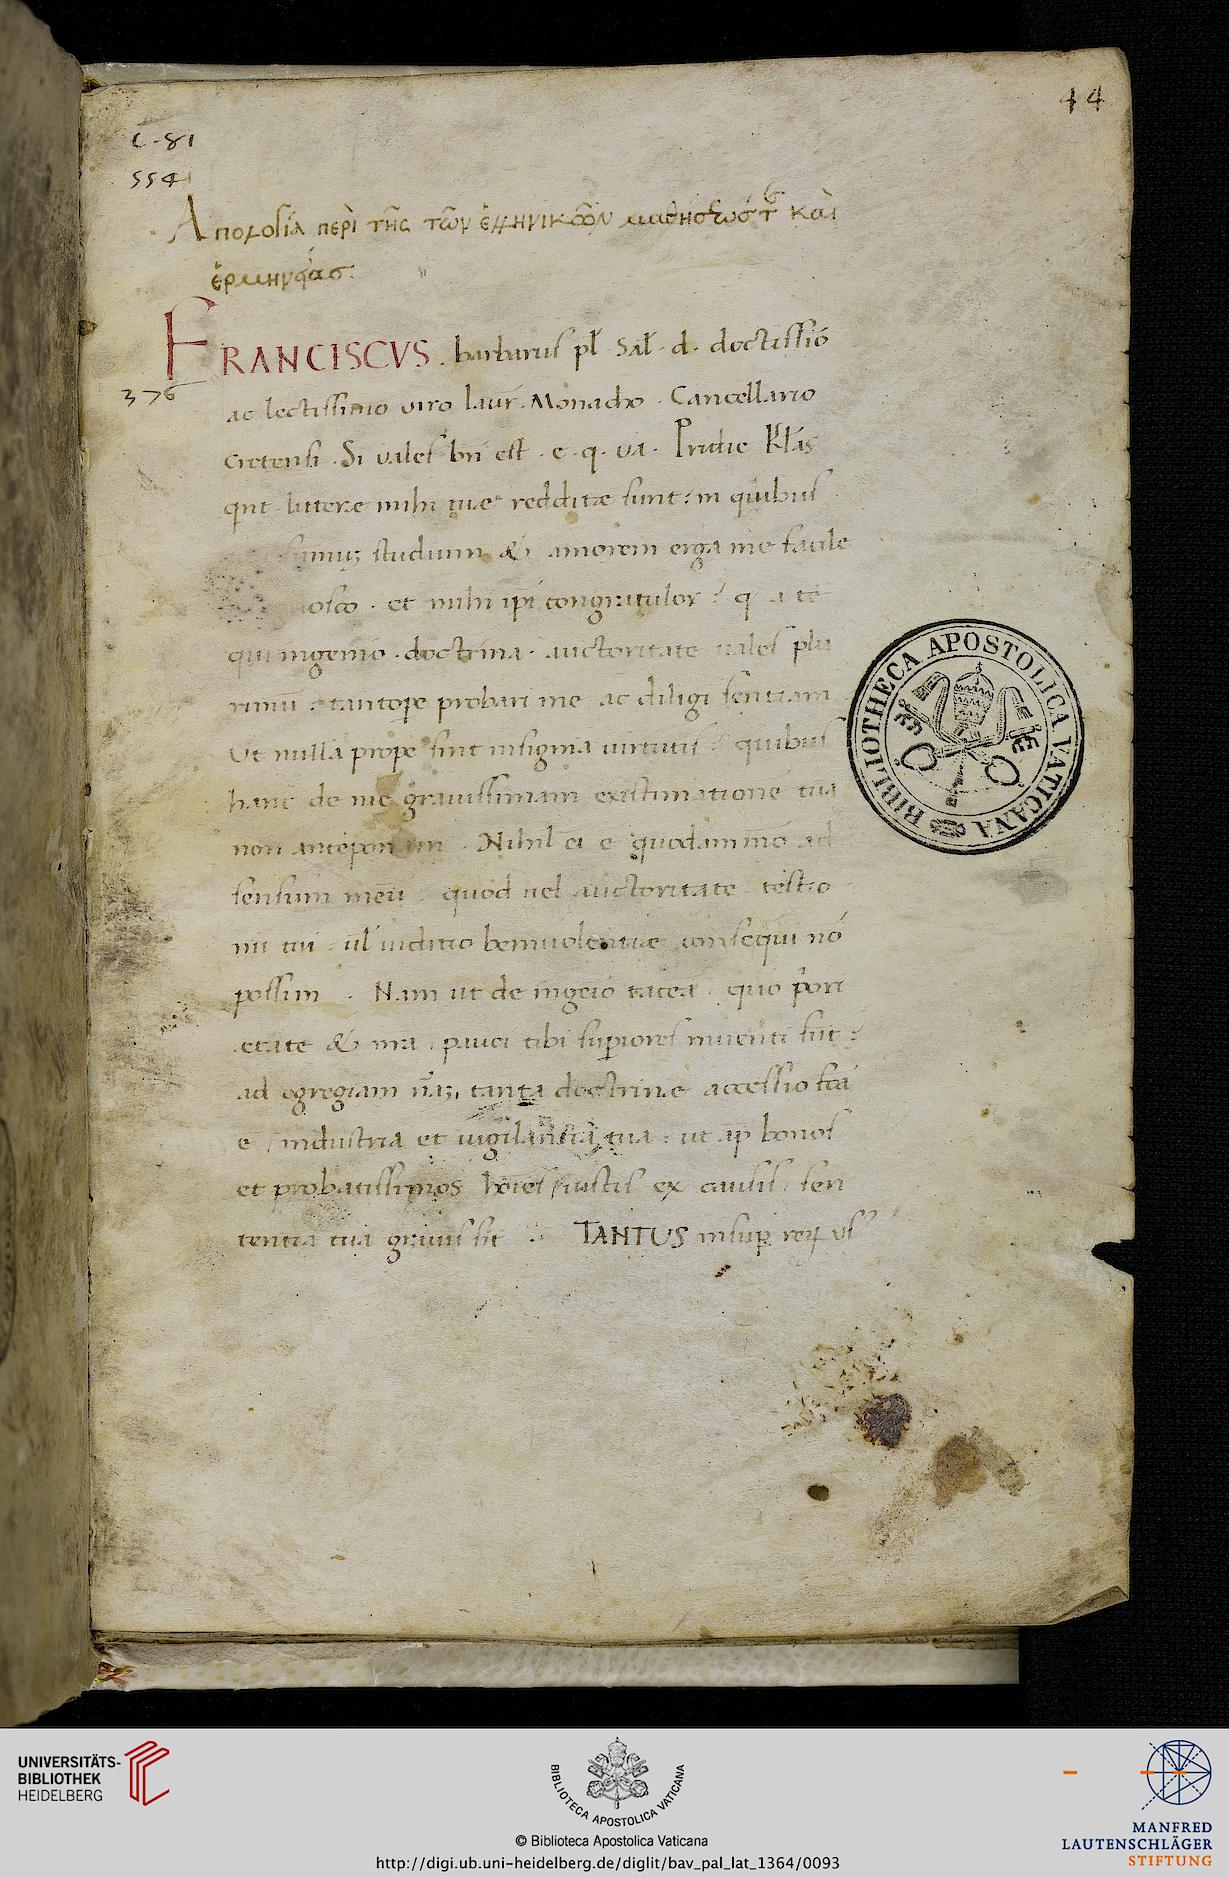 44
C-81
554
Απολογία περὶ τῆς τῶν ἑλληνικῶν μαθήσεως τε καὶ
ἑρμηνείας.
FRANCISCVS. barbarus pl̄ Sal̄. d. doctissio̅
376
ac lectissimo viro laur̄. Monacho. Cancellario
cretensi. Si uales bn̄ est. e. q. ua. Pridie Kl̄as
qnt. littere mihi tue redditæ sunt: in quibus
summu; studium & amorem erga me facile
et mihi ipi congratulor: q a te
qui ingenio. doctrina. auctoritate uales plu
rimu̅: tantope probari me ac diligi sentiam
Ut nulla prope sint insignia uirtutis: quibus
hanc de me grauissimam existimatione̅ tua̅
non anteponam. Nihil ei e̅ quodammo ad
sensum meu̅. quod uel auctoritate testio
nii tui. ul̄ iuditio beniuolentiæ consequi no̅
possim. Nam ut de ingeio tacea̅. quo p̄ori
etate & nra. pauci tibi supiores inuenti su̅t:
ad egregiam na̅; tanta doctrine accessio fca̅
e̅ industria et uigilantia tua: ut ap̄ bonos
et probatissimos ho̅ies iustis ex causis sen
tentia tua grauis sit. TANTUS insup reꝝ us
BIBLIOTHECA APOSTOLICA VATICANA
UNIVERSITÄTS-
BIBLIOTHEK
HEIDELBERG
BIBLIOTECA APOSTOLICA VATICANA
© Biblioteca Apostolica Vaticana
http://digi.ub.uni-heidelberg.de/diglit/bav_pal_lat_1364/0093
MANFRED
LAUTENSCHLÄGER
STIFTUNG